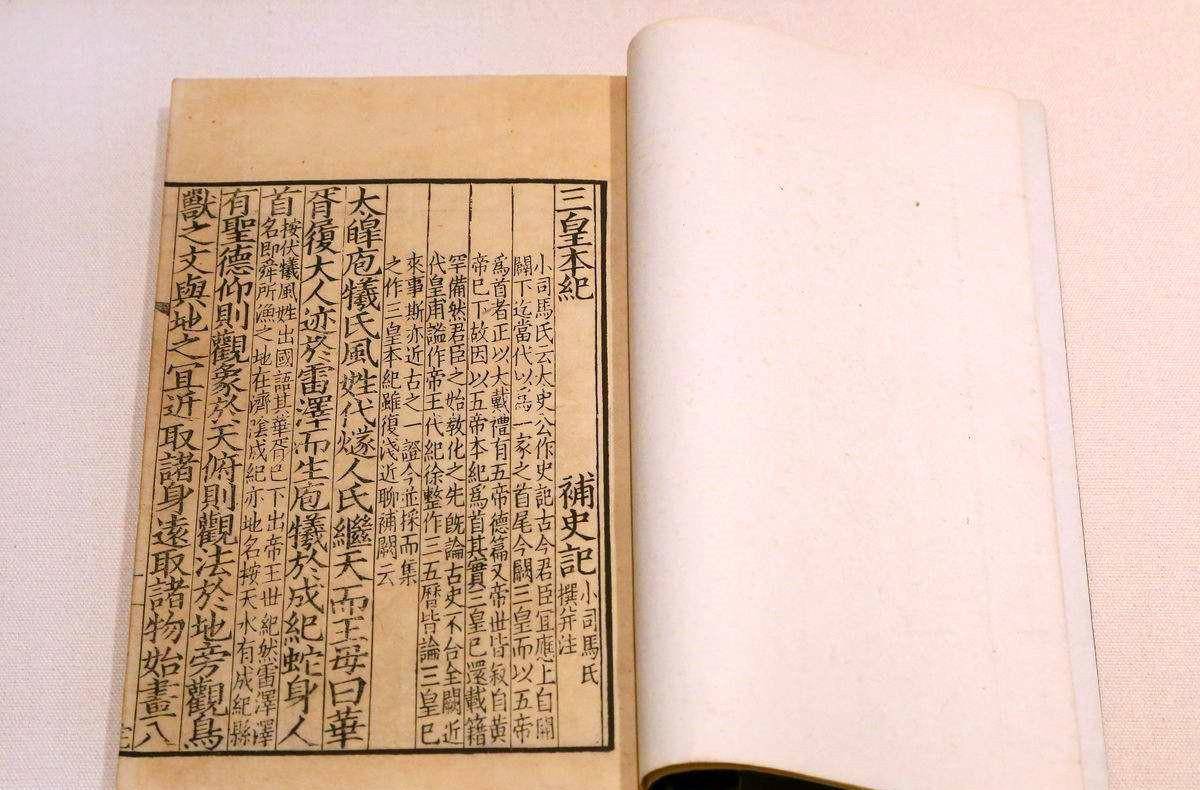 三皇本紀 補史記 小司馬氏
撰并注
小司馬氏云太史公作史記古今君臣宜應上自開
闢下迄當代以爲一家之首尾今闕三皇而以五帝
爲首者正以大戴禮有五帝德篇又帝世皆叙自黃
帝已下故因以五帝本紀爲首其實三皇已還載籍
罕備然君臣之始敎化之先旣論古史不合全闕近
代皇甫謐作帝王代紀徐整作三五曆皆論三皇已
來事斯亦近古之一證今並採而集
之作三皇本紀雖復淺近聊補闕云
太皥庖犧氏風姓代燧人氏繼天而王母曰華
胥履大人迹於雷澤而生庖犧於成紀蛇身人
首 按伏犧風姓出國語其華胥已下出帝王世紀然雷澤澤
名即舜所漁之地在濟陰成紀亦地名按天水有成紀縣
有聖德仰則觀象於天俯則觀法於地旁觀鳥
獸之文與地之宜近取諸身遠取諸物始畫八